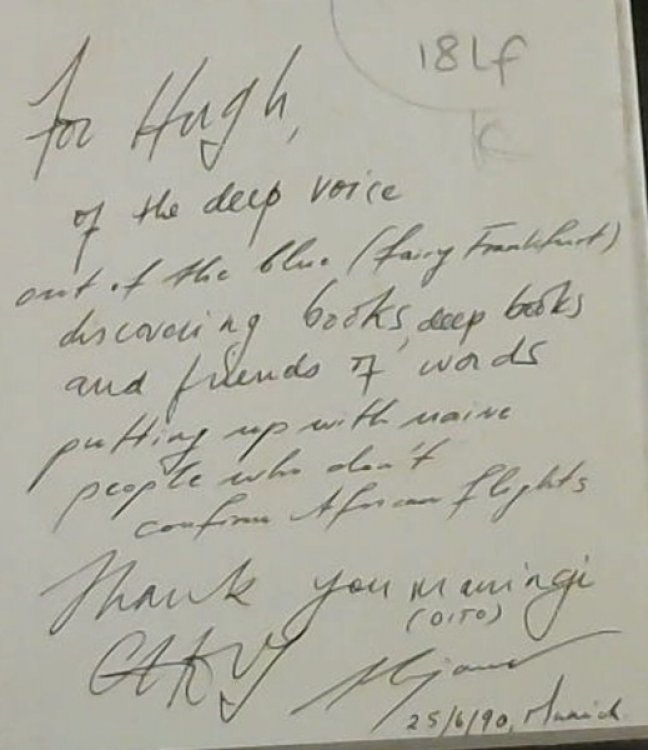 18Lf
K
For Hugh,
of the deep voice
out of the blue (fairy Frankfurt)
discovering books, deep books
and friends of words
putting up with naive
people who don't
confirm African flights
Thank you maningi
(OITO)
25/6/90, Munich.